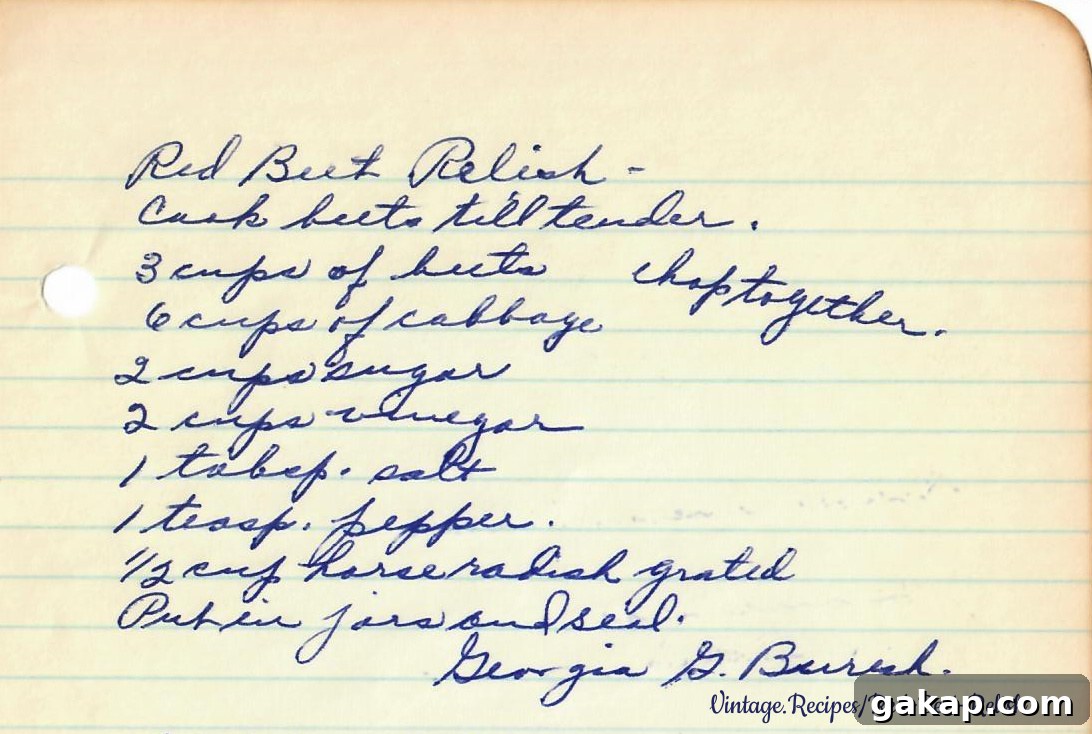 Red Beet Relish -
Cook beets till tender.
3 cups of beets chop together.
6 cups of cabbage
2 cups sugar
2 cups vinegar
1 tabsp. salt
1 teasp. pepper.
1/2 cup horse radish grated
Put in jars and seal.
Georgia G. Buresh.
Vintage.Recipes/
gakap.com